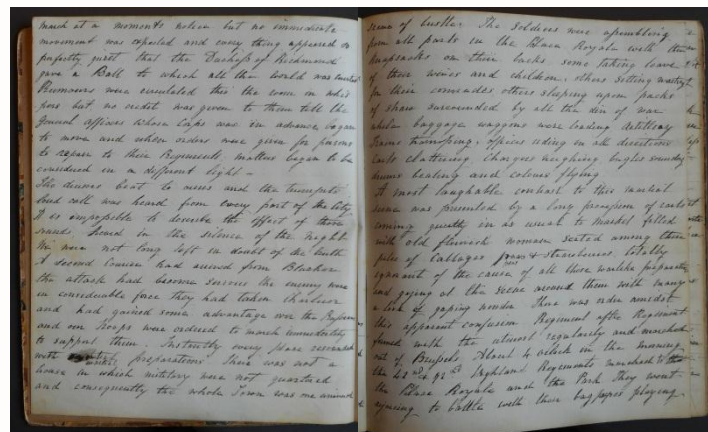 march at a moments notice but no immediate
movement was expected and every thing appeared so
perfectly quiet that the Dutchess of Richmond
gave a Ball to which all the world was invited
Rumours were circulated thro' the room in whis
pers but no credit was given to them till the
General officers whose Corps was in advance began
to move and when orders were given for persons
to repair to their Regiments matters began to be
considered in a different light —
The drums beat to arms and the trumpets
loud call was heard from every part of the City
It is impossible to describe the effect of these
sounds heard in the silence of the night
We were not long left in doubt of the truth
A second Courier had arrived from Blucher
the attack had become serious the enemy were
in considerable force they had taken Charleroi
and had gained some advantage over the Prussians
and our troops were ordered to march immediately
to support them. Instantly every place resounded
with preparations There was not a
house in which military were not quartered
and consequently the whole Town was one animated
scene of bustle. The Soldiers were assembling
from all parts in the Place Royale with their
knapsacks on their backs some taking leave
of their wives and children others sitting waiting
for their comrades others sleeping upon packs
of straw surrounded by all the din of war
while baggage waggons were loading Artillery
trains officers riding in all directions
Carts clattering Chargers neighing bugles sounding
drums beating and colours flying
A most laughable contrast to this martial
scene was presented by a long procession of carts
coming quietly in as usual to market filled
with old flemish women seated among their
piles of Cabbages peas & Strawberries totally
ignorant of the cause of all these warlike preparations
and gazing at the scene around them with many
a look of gaping wonder. There was order amidst
this apparent confusion Regiment after Regiment
formed with the utmost regularity and marched
out of Brussels About 4 oclock in the morning
the 42nd & 92nd Highland Regiments marched through
the Place Royale and the Park They went
rejoicing to battle with their bagpipes playing